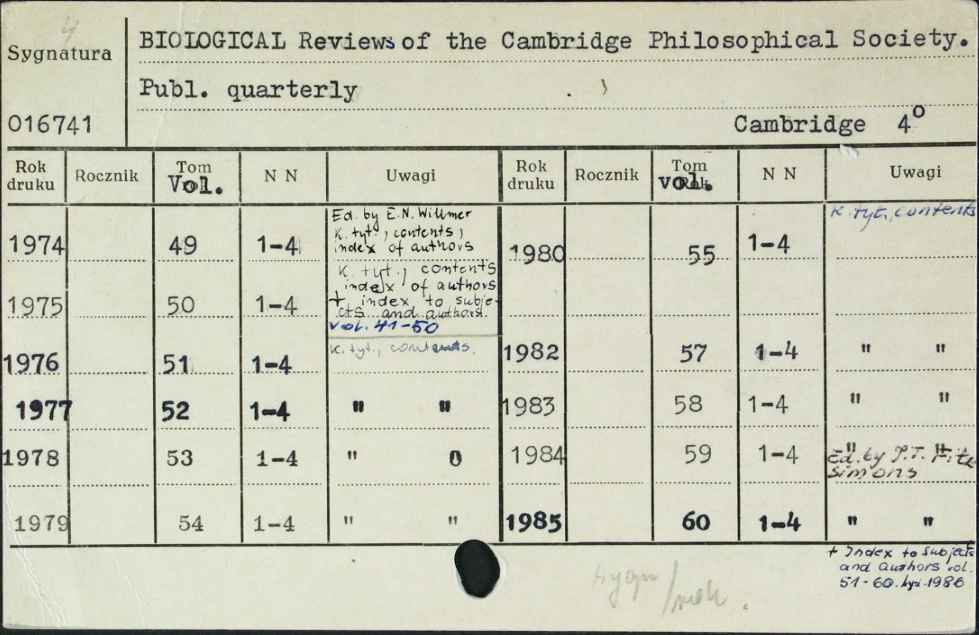 4
Sygnatura
BIOLOGICAL Reviews of the Cambridge Philosophical Society.
Publ. quarterly
016741
Cambridge 4°
Rok druku Rocznik Tom Vol. N N Uwagi Rok druku Rocznik Tom vol. N N Uwagi
1974 49 1-4 Ed. by E.N. Willmer
K. tyt., contents,
index of authors
1980 55 1-4 K. tyt., contents
1975 50 1-4 K. tyt., contents
index of authors
+ index to subje-
cts and authors.
vol. 41-50
1976 51 1-4 K. tyt., contents.
1982 57 1-4 " "
1977 52 1-4 " "
1983 58 1-4 " "
1978 53 1-4 " 0
1984 59 1-4 " "
Ed. by P.T. Fitz
simons
1979 54 1-4 " "
1985 60 1-4 " "
+ Index to subjects
and authors vol.
51-60. 1986